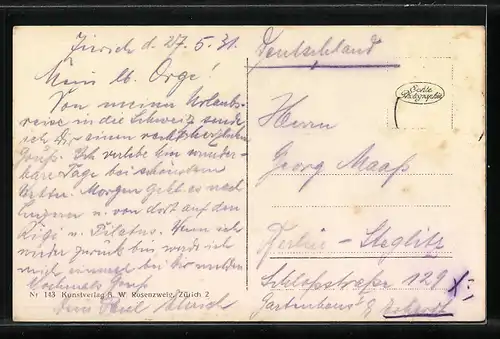 Zürich d. 27.5.31.
Mein lb. Orge!
Von meiner Urlaubs-
reise in die Schweiz sende
ich Dir einen recht herzlichen
Gruß. Ich verlebe hier wunder-
bare Tage bei schönstem
Wetter. Morgen geht es nach
Luzern u. von dort auf den
Rigi u. Pilatus. Wenn ich
wieder zurück bin werde ich
mich einmal bei Dir melden
Nochmals Gruß
Dein
Nr. 143 Kunstverlag A. W. Rosenzweig, Zürich 2
Deutschland
Echte
Photographie
Herrn
Georg Maaß
Berlin-Steglitz
Schloßstraße 129
Gartenhaus